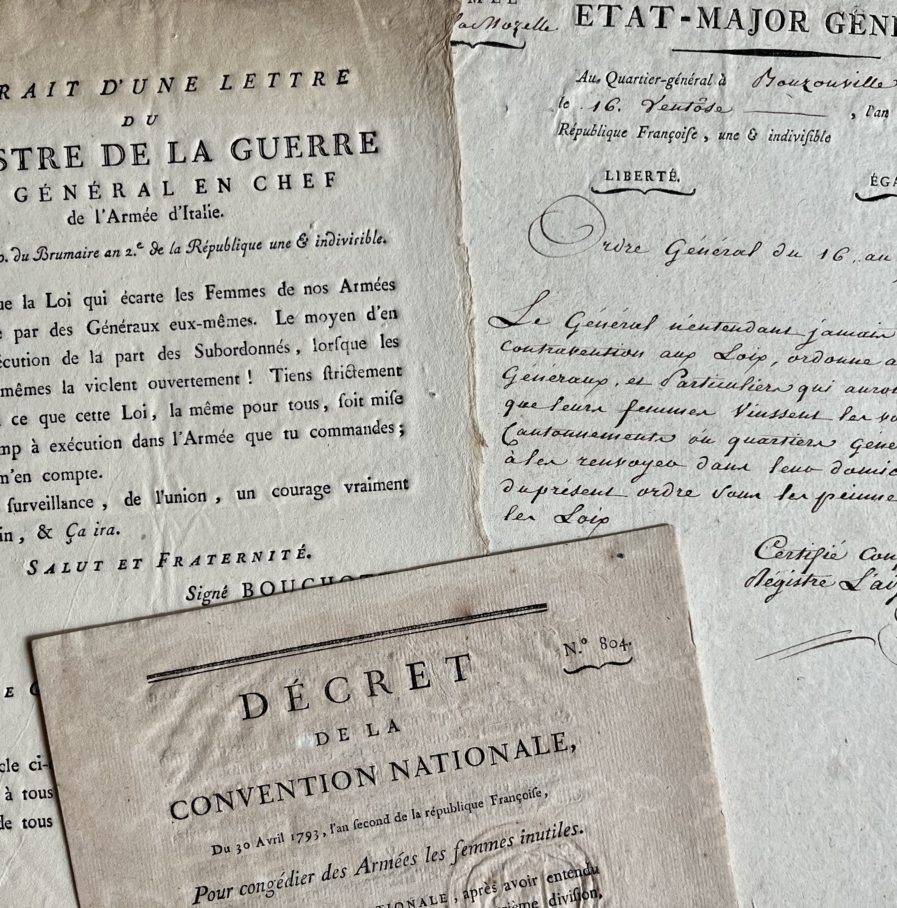 RAIT D'UNE LETTRE
DU
STRE DE LA GUERRE
GÉNÉRAL EN CHEF
de l'Armée d'Italie.
du Brumaire an 2.e de la République une & indivirible.
ue la Loi qui écarte les Femmes de nos Armées
e par des Généraux eux-mêmes. Le moyen d'en
écution de la part des Subordonnés, lorſque les
mêmes la viclent ouvertement ! Tiens ſtrictement
ce que cette Loi, la même pour tous, ſoit miſe
mp à exécution dans l'Armée que tu commandes ;
m'en compte.
ſurveillance, de l'union, un courage vraiment
in, & Ça ira.
SALUT ET FRATERNITÉ.
Signé BOUCHOT
cle ci-
à tous
de tous
la Mozelle
ETAT-MAJOR GÉN
Au Quartier-général à Bouzouville
le 16. Ventôse , l'an
République Françoiſe, une & indiviſible
LIBERTÉ.
ÉGA
Ordre Général du 16 au
Le Général n'entendant jamais
contravention aux Loix, ordonne a
Généraux, et Particuliers qui auro
que leurs femmes vinssent les vo
Cantonnements ou quartiers géné
à les renvoyer dans leur domic
du présent ordre sous les peines
les Loix
Certifié con
Régistre L'a
N.º 804.
DÉCRET
DE LA
CONVENTION NATIONALE,
Du 30 Avril 1793, l'an ſecond de la république Françoiſe,
Pour congédier des Armées les femmes inutiles.
TIONALE, après avoir entendu
ième diviſion,